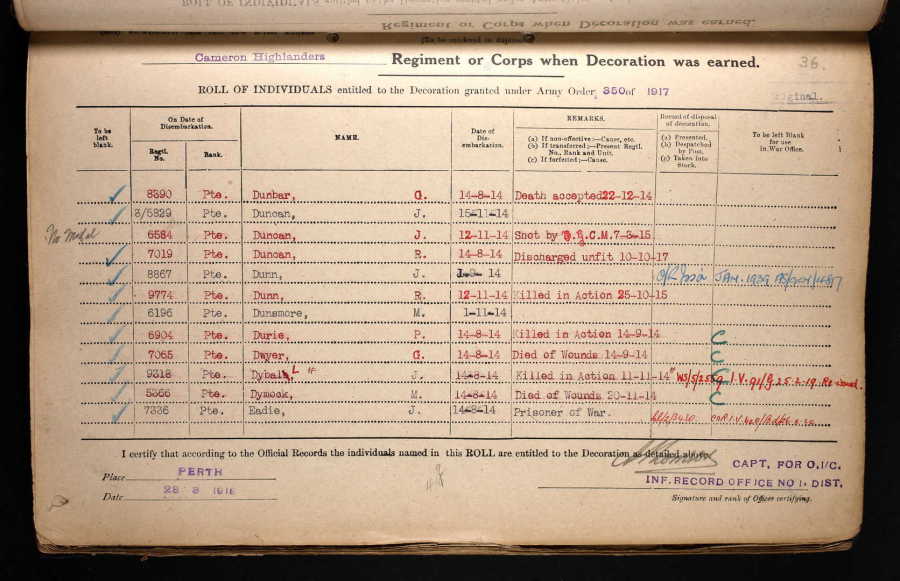 Regiment or Corps when Decoration was earned.
Cameron Highlanders Regiment or Corps when Decoration was earned.
36.
ROLL OF INDIVIDUALS entitled to the Decoration granted under Army Order, 350 of 1917
To be left blank.
On Date of Disembarkation.
Regtl. No.
Rank.
NAME.
Date of Disembarkation.
REMARKS.
(a) If non-effective:—Cause, etc.
(b) If transferred:—Present Regtl. No., Rank and Unit.
(c) If forfeited:—Cause.
Record of disposal of decoration.
(a) Presented.
(b) Despatched by Post.
(c) Taken into Stock.
To be left Blank for use in War Office.
8390 Pte. Dunbar, G. 14-8-14 Death accepted 22-12-14
3/5829 Pte. Duncan, J. 15-11-14
No Medal 6584 Pte. Duncan, J. 12-11-14 Shot by F.G.C.M. 7-3-15
7019 Pte. Duncan, R. 14-8-14 Discharged unfit 10-10-17
8867 Pte. Dunn, J. 14 JAN. 1939
9774 Pte. Dunn, R. 12-11-14 Killed in Action 25-10-15
6196 Pte. Dunsmore, M. 1-11-14
6904 Pte. Durie, P. 14-8-14 Killed in Action 14-9-14 C
7065 Pte. Dwyer, G. 14-8-14 Died of Wounds 14-9-14 C
9318 Pte. Dyball, J. 14-8-14 Killed in Action 11-11-14 C
5366 Pte. Dymock, M. 14-8-14 Died of Wounds 20-11-14 C
7336 Pte. Eadie, J. 14-8-14 Prisoner of War.
I certify that according to the Official Records the individuals named in this ROLL are entitled to the Decoration as detailed above.
Place PERTH
CAPT, FOR O.I/C.
INF. RECORD OFFICE NO 1. DIST.
Date 28 8 1918
Signature and rank of Officer certifying.